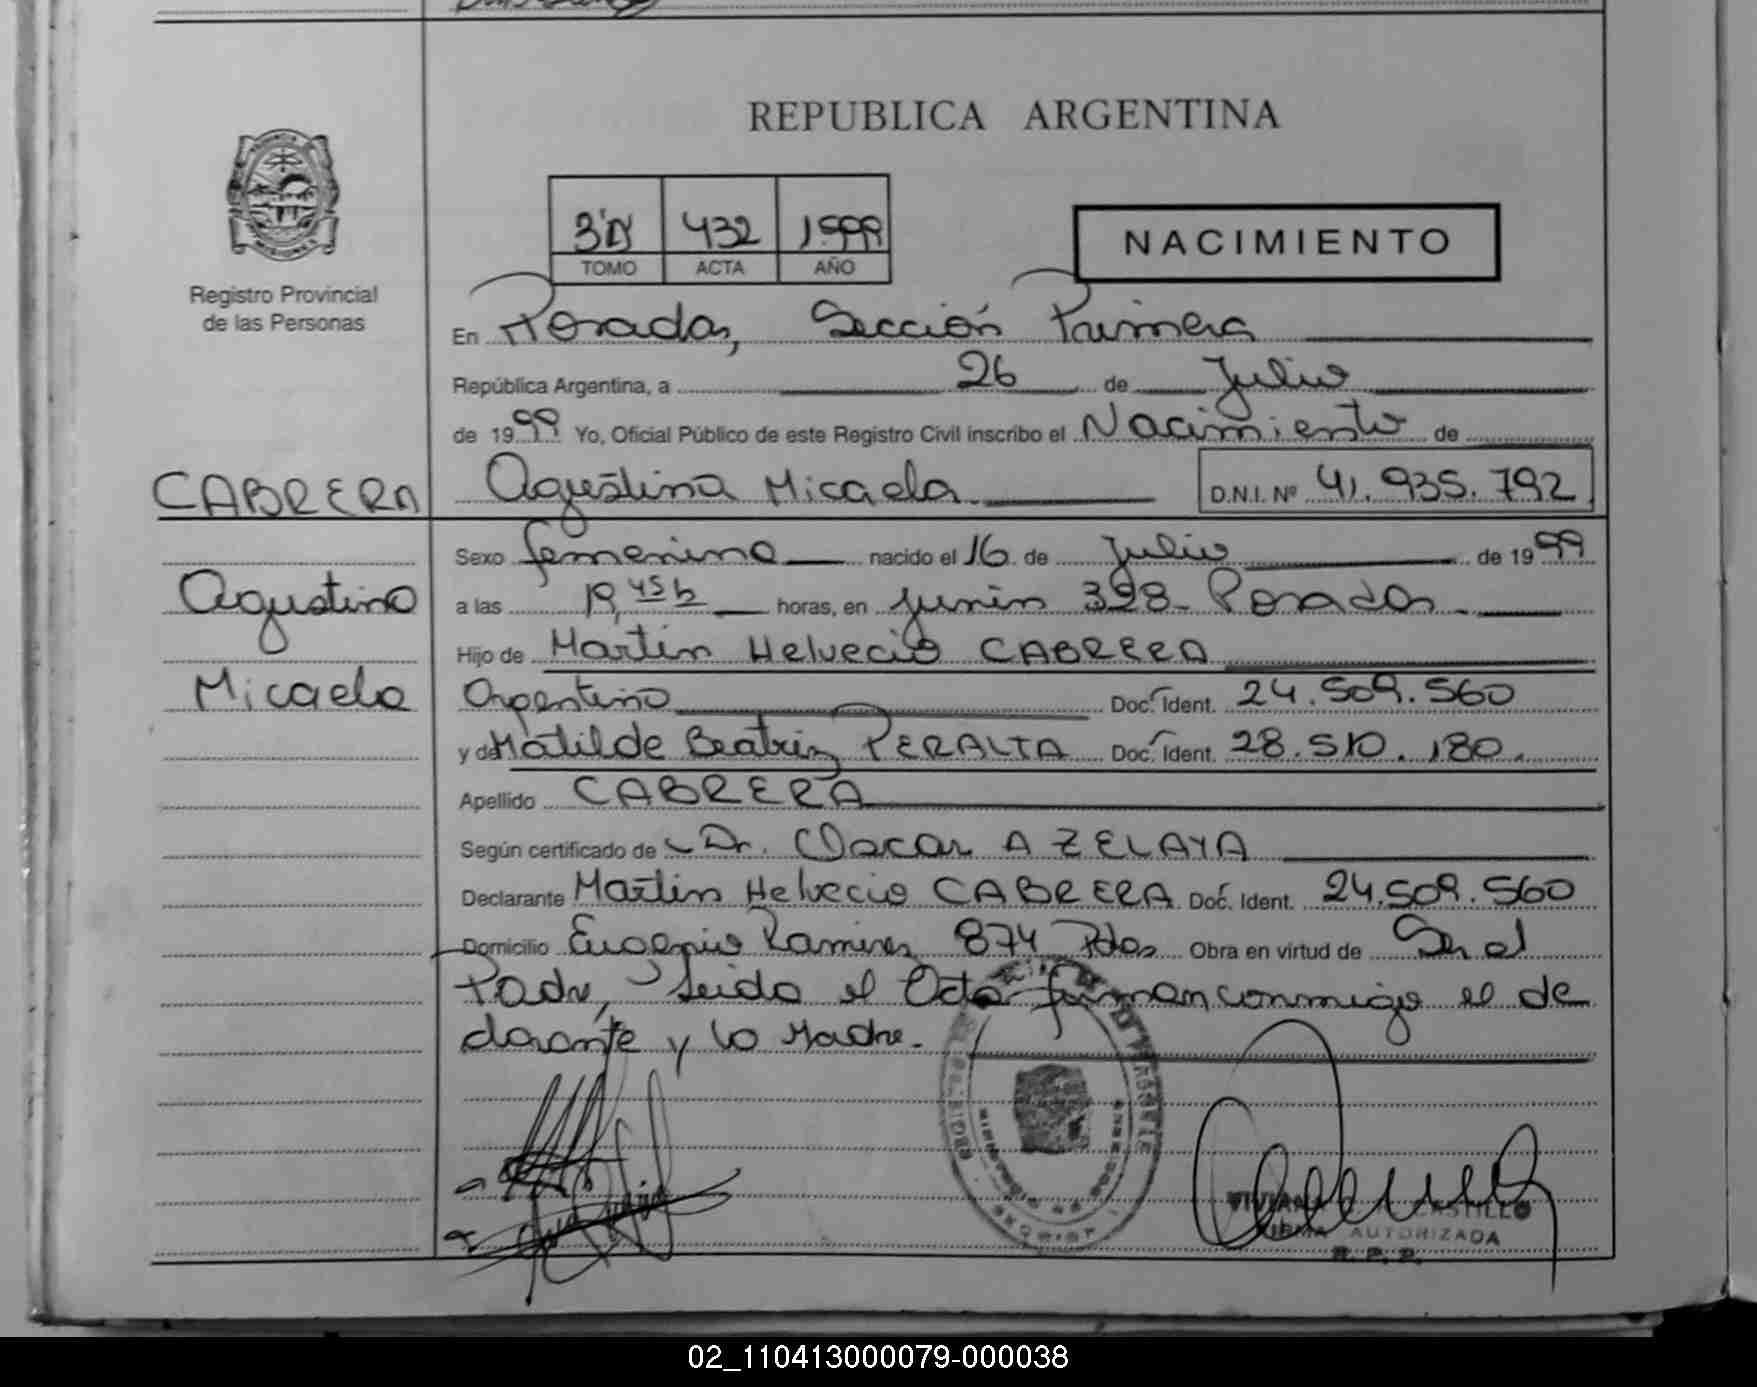 REPUBLICA ARGENTINA
Registro Provincial
de las Personas
432 1999
TOMO ACTA AÑO
NACIMIENTO
En Posadas, Sección Primera
República Argentina, a 26 de Julio
de 1999 Yo, Oficial Público de este Registro Civil inscribo el Nacimiento de
CABRERA Agustina Micaela D.N.I. Nº 41.935.792
Sexo femenino nacido el 16 de Julio de 1999
Agustina a las 19,45 h horas, en Junín 398 Posadas
Hijo de Martin Helvecio CABRERA
Micaela Argentino Doc. Ident. 24.509.560
y de Matilde Beatriz PERALTA Doc. Ident. 28.510.180.
Apellido CABRERA
Según certificado de Dr. Oscar A ZELAYA
Declarante Martin Helvecio CABRERA Doc. Ident. 24.509.560
Domicilio Eugenio Ramirez 874 Pdas Obra en virtud de Ser el
Padre, leida el Acta firman conmigo el de
clarante y la Madre.
VIVIANA CASTILLO
FIRMA AUTORIZADA
R. P. P.
02_110413000079-000038